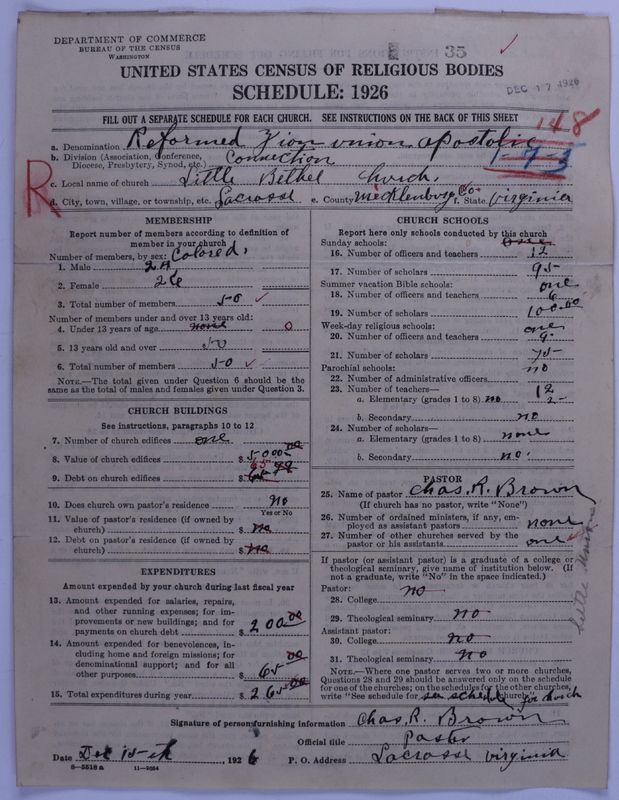 DEPARTMENT OF COMMERCE
BUREAU OF THE CENSUS
WASHINGTON
35
UNITED STATES CENSUS OF RELIGIOUS BODIES
SCHEDULE: 1926
DEC 17 1926
FILL OUT A SEPARATE SCHEDULE FOR EACH CHURCH. SEE INSTRUCTIONS ON THE BACK OF THIS SHEET
148
a. Denomination Reformed Zion union apostolic
b. Division (Association, Conference, Diocese, Presbytery, Synod, etc.) Connection
173
R
c. Local name of church Little Bethel Church,
d. City, town, village, or township, etc. Lacrosse e. County Mecklenburg Co. f. State Virginia
MEMBERSHIP
Report number of members according to definition of
member in your church
Number of members, by sex: Colored,
1. Male 24
2. Female 26
3. Total number of members 50
Number of members under and over 13 years old:
4. Under 13 years of age none 0
5. 13 years old and over 50
6. Total number of members 50
NOTE.—The total given under Question 6 should be the
same as the total of males and females given under Question 3.
CHURCH BUILDINGS
See instructions, paragraphs 10 to 12
7. Number of church edifices one
8. Value of church edifices $
9. Debt on church edifices $
10. Does church own pastor's residence no
Yes or No
11. Value of pastor's residence (if owned by
church) $ no
12. Debt on pastor's residence (if owned by
church) $ no
EXPENDITURES
Amount expended by your church during last fiscal year
13. Amount expended for salaries, repairs,
and other running expenses; for im-
provements or new buildings; and for
payments on church debt $ 200 00
14. Amount expended for benevolences, in-
cluding home and foreign missions; for
denominational support; and for all
other purposes $ 65 00
15. Total expenditures during year $ 265 00
CHURCH SCHOOLS
Report here only schools conducted by this church
Sunday schools:
16. Number of officers and teachers 12
17. Number of scholars 95
Summer vacation Bible schools: one
18. Number of officers and teachers 6
19. Number of scholars 100.00
Week-day religious schools: one
20. Number of officers and teachers 9
21. Number of scholars 75
Parochial schools: no
22. Number of administrative officers
23. Number of teachers— 12
a. Elementary (grades 1 to 8) no 2
b. Secondary no
24. Number of scholars—
a. Elementary (grades 1 to 8) none
b. Secondary no.
PASTOR
25. Name of pastor Chas. R. Brown
(If church has no pastor, write "None")
26. Number of ordained ministers, if any, em-
ployed as assistant pastors none
27. Number of other churches served by the
pastor or his assistants one
If pastor (or assistant pastor) is a graduate of a college or
theological seminary, give name of institution below. (If
not a graduate, write "No" in the space indicated.)
Pastor: no
28. College
29. Theological seminary no
Assistant pastor:
30. College no
31. Theological seminary no
NOTE.—Where one pastor serves two or more churches,
Questions 28 and 29 should be answered only on the schedule
for one of the churches; on the schedules for the other churches,
write "See schedule for church"
Signature of person furnishing information Chas. R. Brown
Official title Pastor
Date Dec 15th, 1926 P. O. Address Lacrosse Virginia
8—5518 a 11—9264